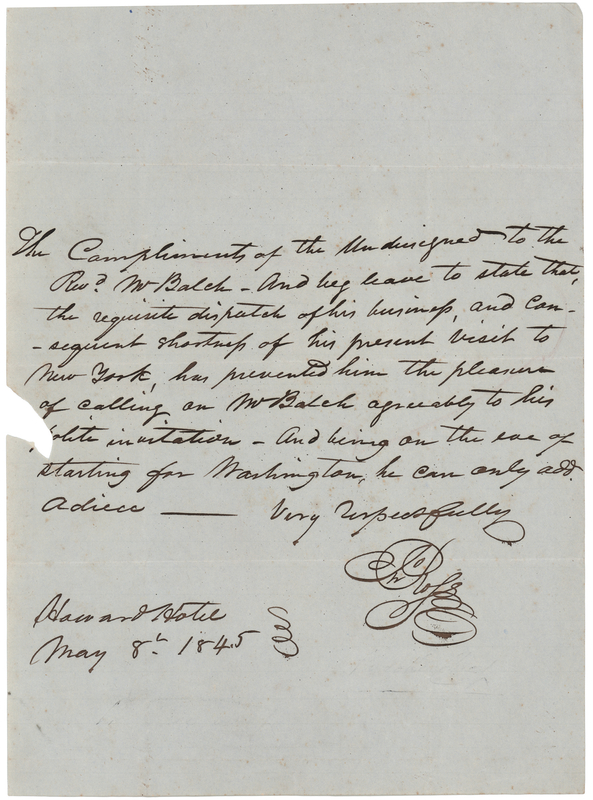 The Compliments of the Undersigned to the
Revd Mr Balch - And beg leave to state that,
the requisite dispatch of his business, and Con-
-sequent shortness of his present visit to
New York, has prevented him the pleasure
of calling on Mr Balch agreeably to his
polite invitation - And being on the eve of
starting for Washington, he can only add
adieu — Very respectfully
Jno Ross
Howard Hotel
May 8th 1845